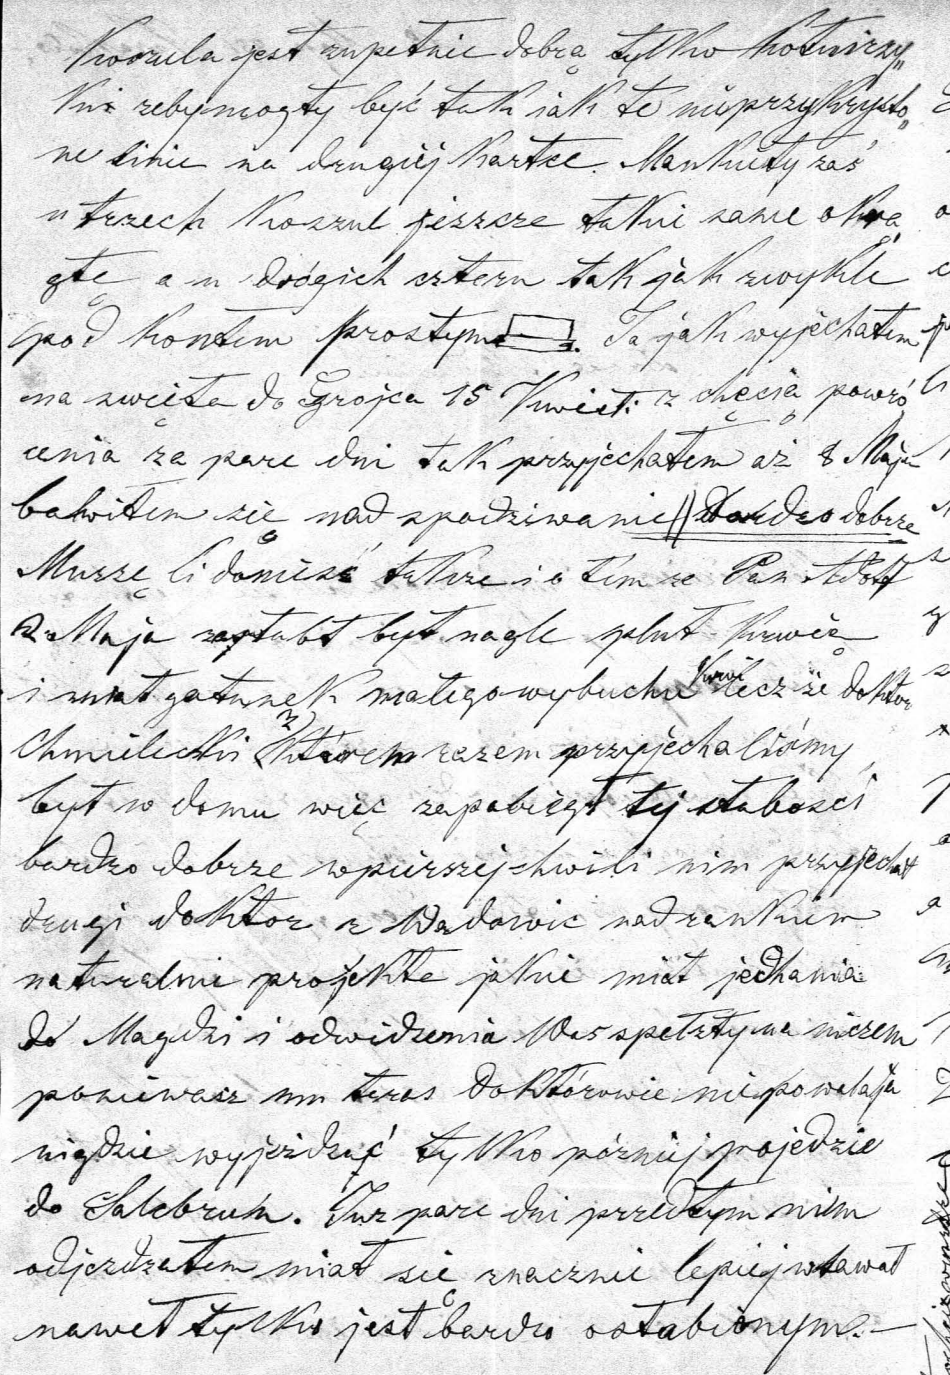 Koszula jest zupełnie dobrą tylko kołnirzy„
Kie żebymogły być tak iak te nieprzykryśło„
ne linie na drugiéj kartce. Mankiety zaś
u trzech koszul jeszcze takie same okrą
głe a u drógich czteru tak jak zwykle
pod kontem prostym. Ja jak wyjechałem
na święta do Grojca 15 Kwiet: z chęcią powró
cenia za parę dni tak przyjechałem aż 8 Maja
bawiłem się nad spodziwanie bardzo dobrze
Muszę Ci donieść także i o tém że Pan Adolf
2 Maja zasłabł był nagle pluł krwią
i miał gatunek małego wybuchu krwi lecz że doktor
Chmielecki z którem razem przyjechaliśmy
był w domu więc zapobiegł téj słabości
bardzo dobrze wpierszéj chwili nim przyjechał
drugi doktor z Wadowic nadrankiem
naturalnie projekte jakie miał jechania
do Magdzi i odwidzenia Was spełzły na niczem
poniewasz mu teras doktórowie nie powalają
nigdzie wyjeżdżać tylko późniéj pojedzie
do Salcbrun. Już parę dni przedtym nim
odjeżdżałem miał się znacznie lepiéj wstawał
nawet tylko jest bardzo osłabionym.—